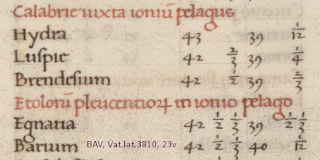 Calabrie iuxta ioniũ pelagus
Hydra 43 39 1/12
Luspie 42 2/3 39 1/4
Brendesium 42 1/2 39 2/3
Etolorũ pleucentioꝝ in ionio pelago
Egnatia 42 1/2 1/3 39 1/2 1/3
Barium 42 1/2 1/3 40 1/12
BAV, Vat.lat.3810, 23v